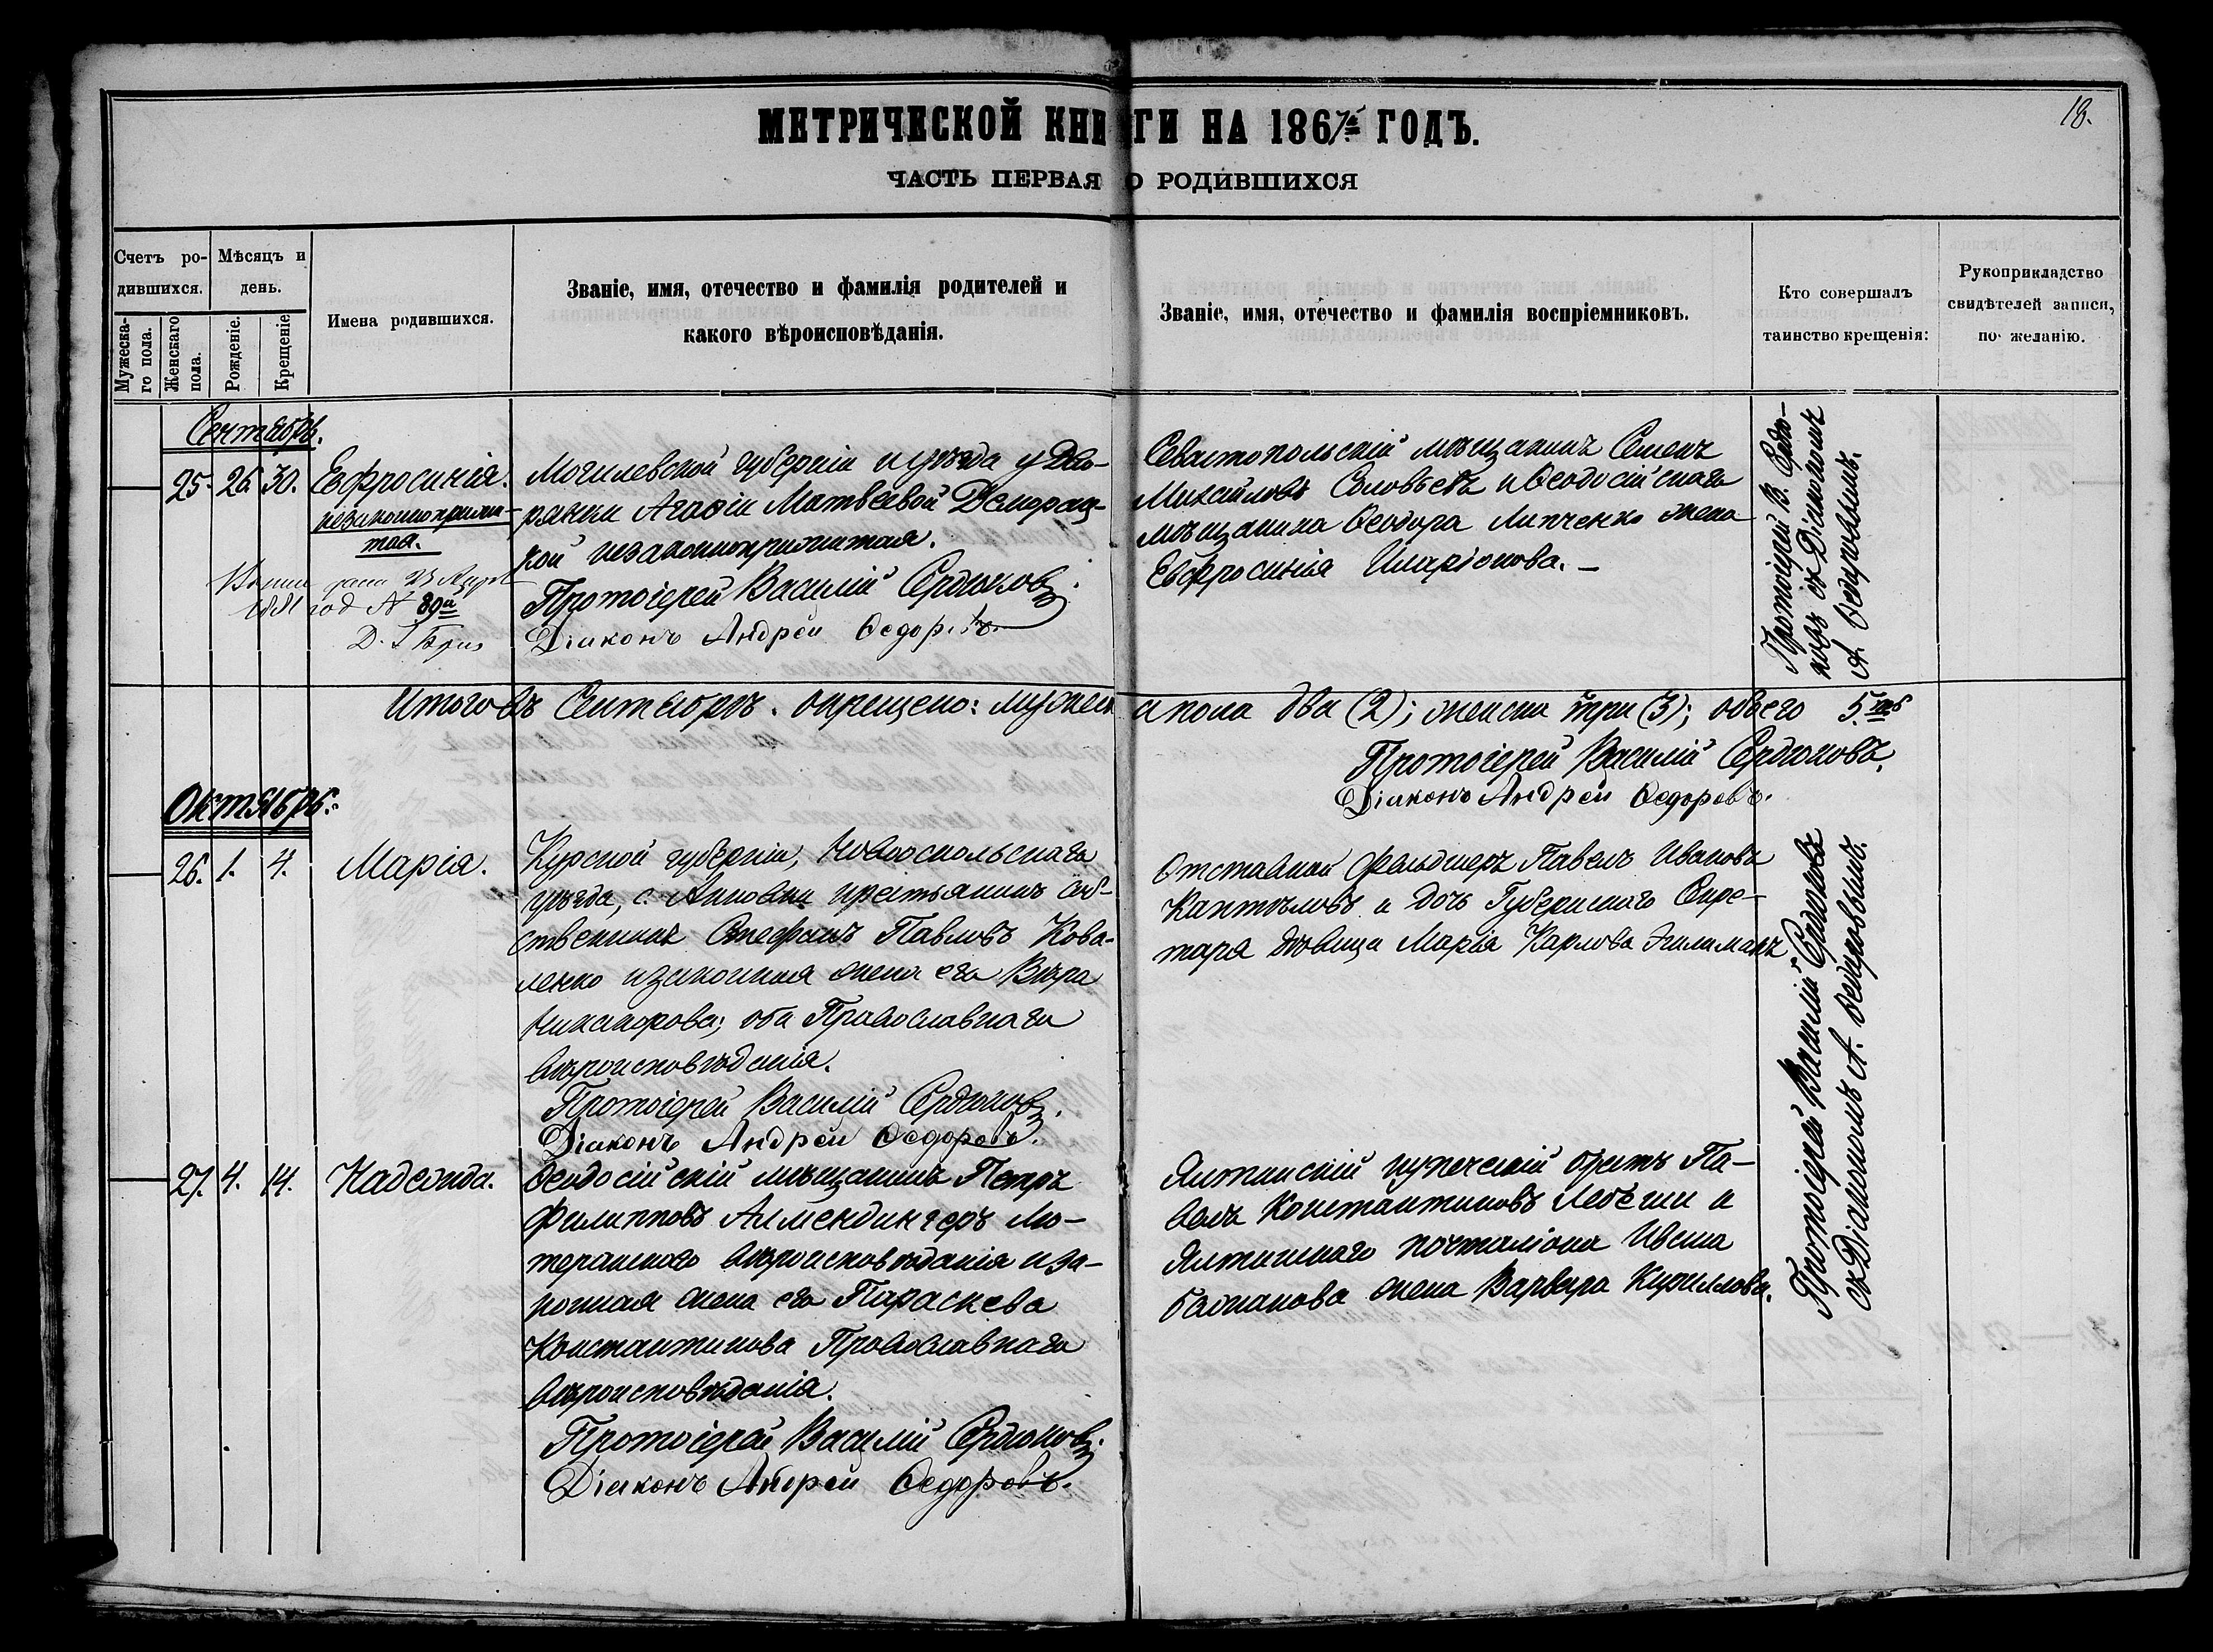 МЕТРИЧЕСКОЙ КНИГИ НА 1867й ГОДЪ.
18.
ЧАСТЬ ПЕРВАЯ О РОДИВШИХСЯ
Счетъ ро-
дившихся.
Мужеска-
го пола.
Женскаго
пола.
Мѣсяцъ и
день.
Рожденіе.
Крещеніе
Имена родившихся.
Званіе, имя, отечество и фамилія родителей и
какого вѣроисповѣданія.
Званіе, имя, отечество и фамилія воспріемниковъ.
Кто совершалъ
таинство крещенія:
Рукоприкладство
свидѣтелей записи,
по желанію.
Сентябрь.
25. 26. 30. Евфросинія.
незаконноприжи-
тая.
1881 год № 89й
Могилевской губерніи и уѣзда у Дво-
рянки Агафіи Матвѣевой
кой незаконноприжитая.
Протоіерей Василій Сердюковъ.
Діаконъ Андрей Ѳедоровъ.
Севастопольскій мѣщанинъ Семенъ
Михайловъ Соловьевъ и Ѳеодосійскаго
мѣщанина Ѳеодора Липченко жена
Евфросинія Иларіонова. –
Протоіерей В. Сердю-
ковъ съ Діакономъ
А. Ѳедоровымъ.
Итого въ Сентябрѣ. окрещено: мужеска пола два (2); женска три (3); обоего 5.ть
Протоіерей Василій Сердюковъ.
Діаконъ Андрей Ѳедоровъ.
Октябрь.
26. 1. 4. Марія.
Курской губерніи, Новооскольскаго
уѣзда, с. крестьянинъ соб-
ственникъ Стефанъ Павловъ Кова-
ленко и законная жена его Вѣра
Никанорова; оба Православнаго
вѣроисповѣданія.
Протоіерей Василій Сердюковъ.
Діаконъ Андрей Ѳедоровъ.
Отставной Фельдшеръ Павелъ Ивановъ
и дочь Губернскаго Секре-
таря дѣвица Марія Карлова
Протоіерей Василій Сердюковъ
съ Діакономъ А. Ѳедоровымъ.
27. 4. 14. Надежда.
Ѳеодосійскій мѣщанинъ Петръ
Филипповъ Алмендингеръ Лю-
теранскаго вѣроисповѣданія и за-
конная жена его Параскева
Константинова Православнаго
вѣроисповѣданія.
Протоіерей Василій Сердюковъ.
Діаконъ Андрей Ѳедоровъ.
Ялтинскій купеческій братъ Па-
велъ Константиновъ и
Ялтинскаго почталіона Ивана
жена Варвара Кириллова.